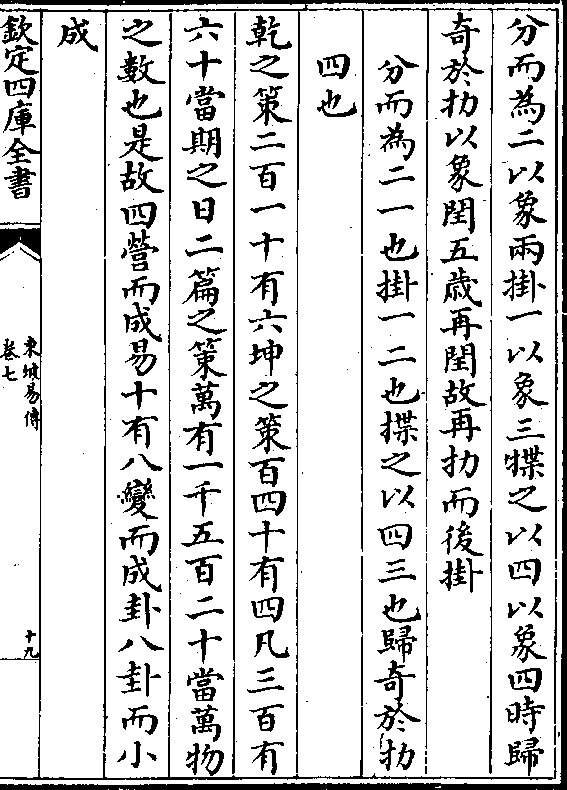 分而為二以象兩掛一以象三揲之以四以象四時歸
奇於扐以象閏五歳再閏故再扐而後掛
分而為二一也掛一二也揲之以四三也歸奇於扐
四也
乾之策二百一十有六坤之策百四十有四凡三百有
六十當期之日二篇之策萬有一千五百二十當萬物
之數也是故四營而成易十有八變而成卦八卦而小
成
欽定四庫全書
東坡易傳
卷七
十九